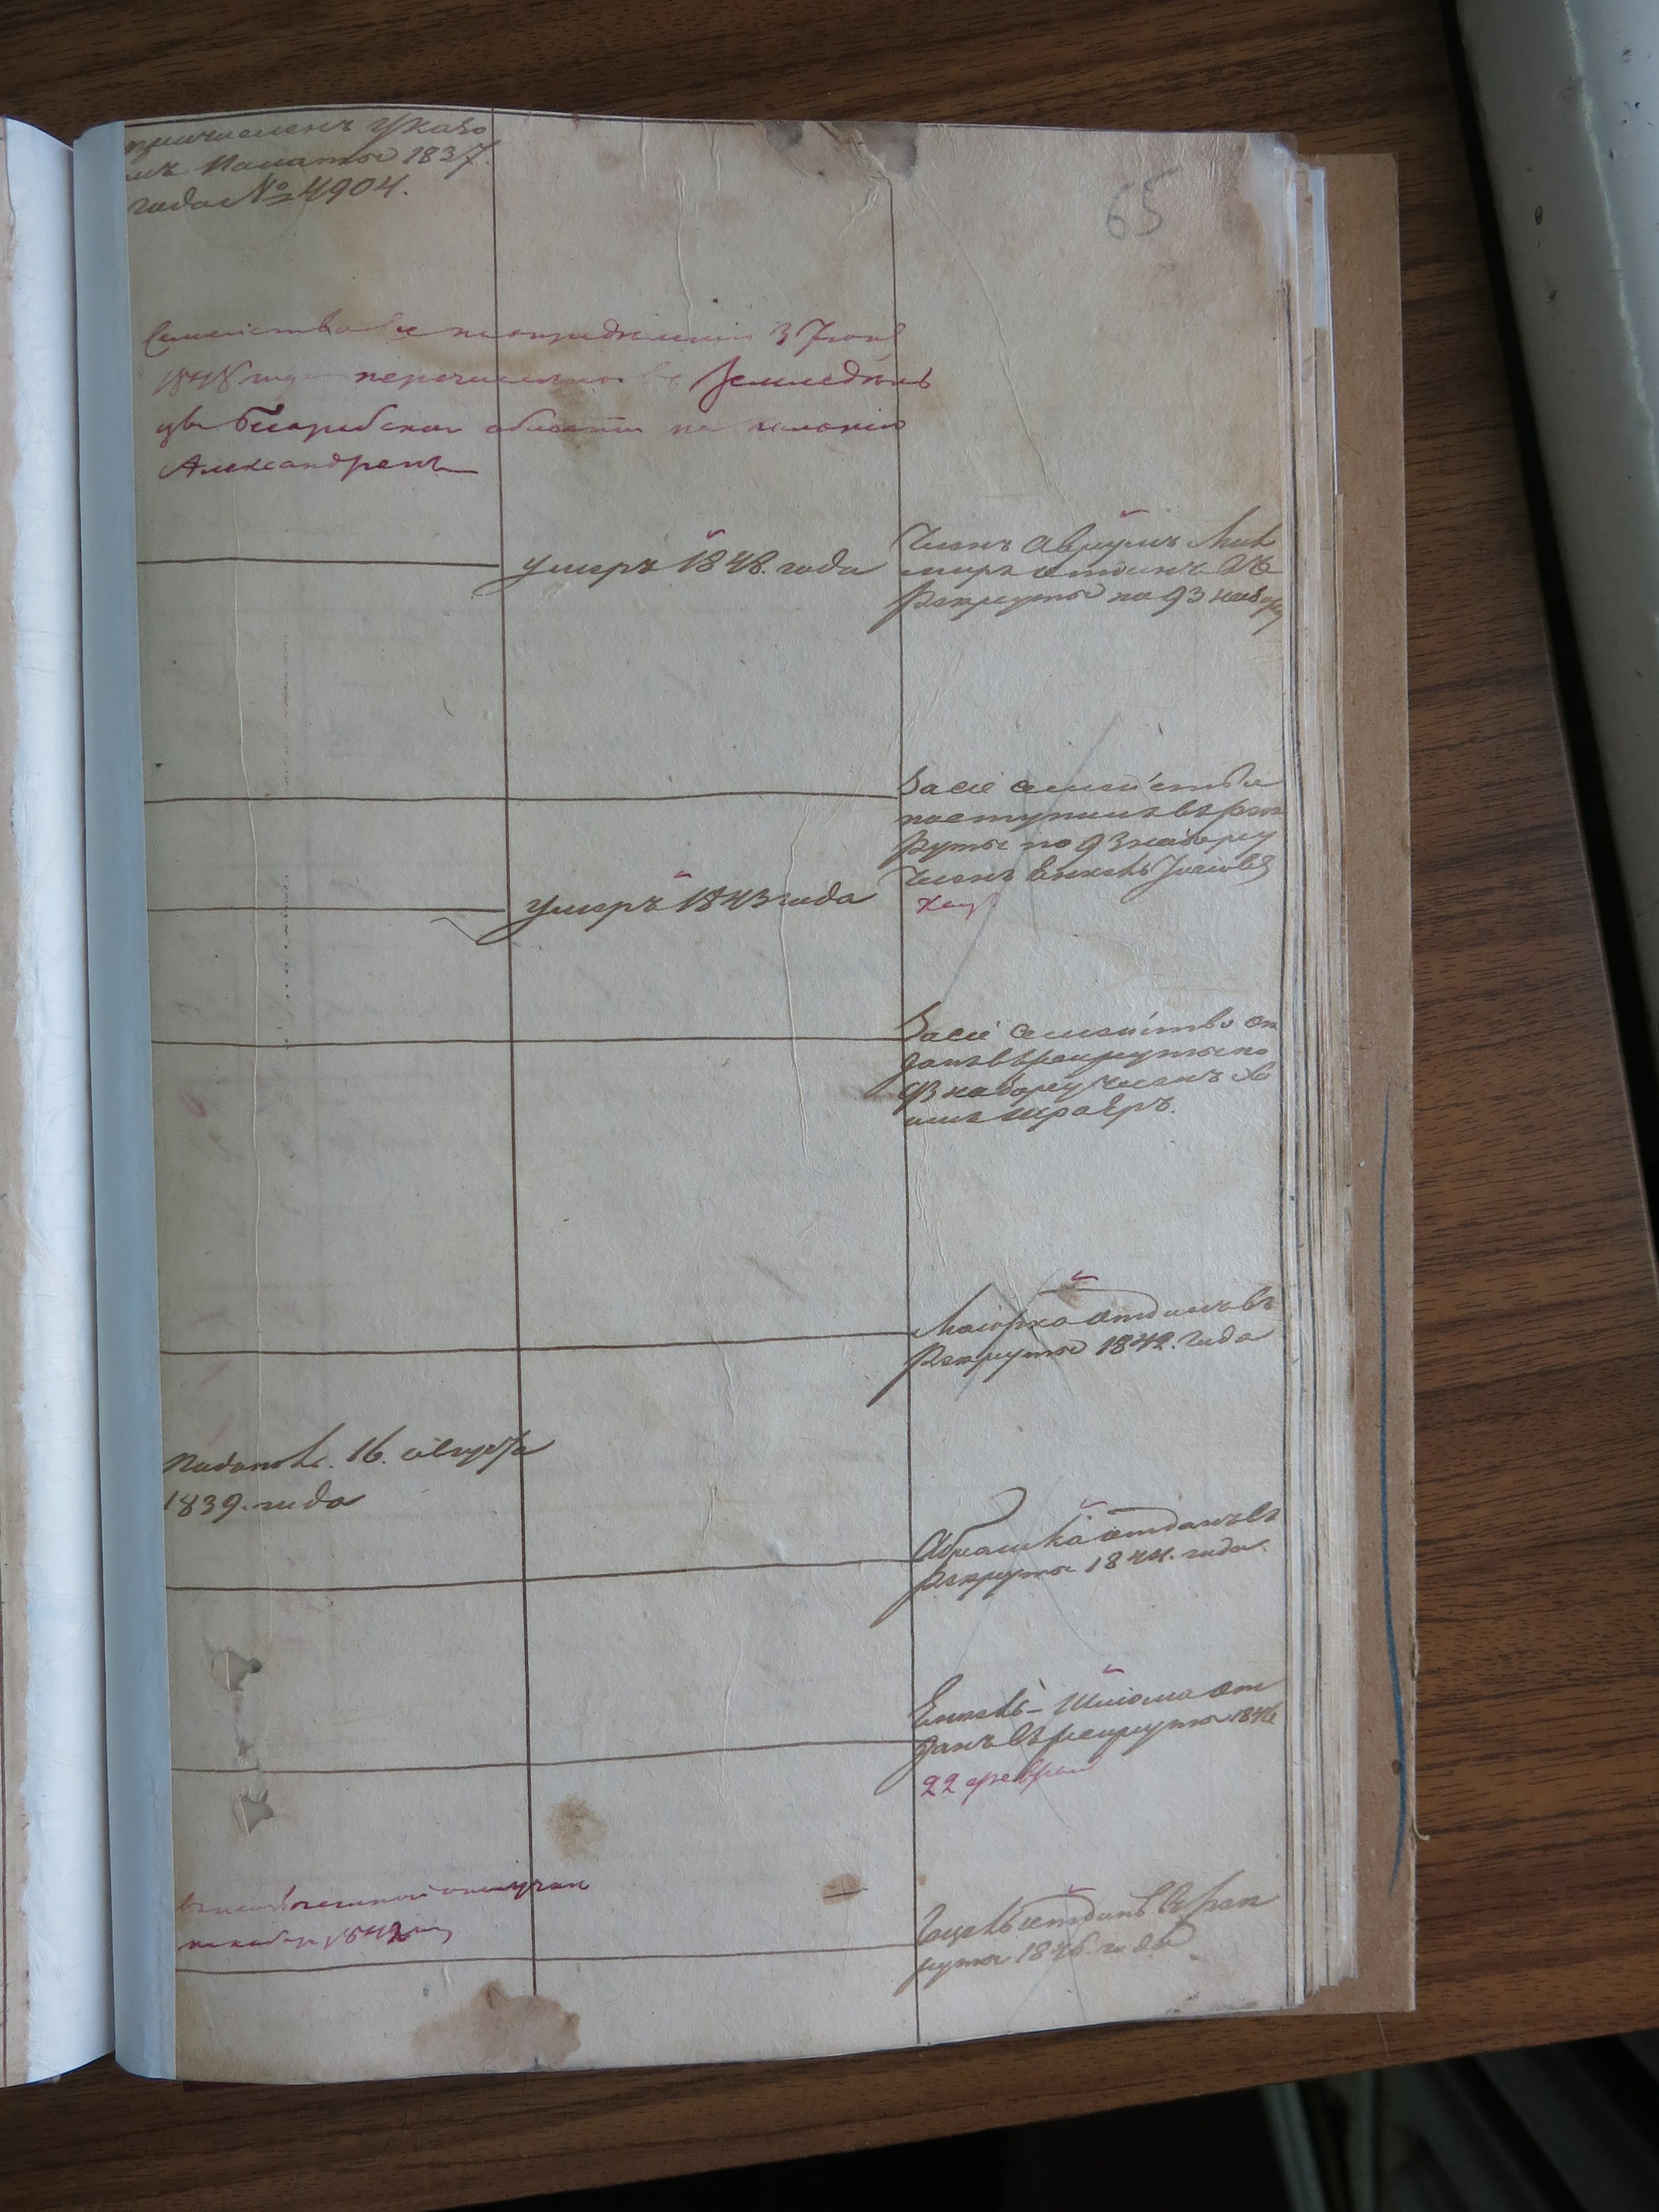 причисленъ указо
мъ Палаты 1837.
года №4904.
65
Семейство все по определенію 3 Іюня
1848 года перечислено въ Земледель
цы Бесарабской области на колонію
Александрень
умеръ 1848. года
Членъ Аврумъ
отданъ въ
рекруты по 93 набору
За сіе семейство
поступилъ въ рек
руты по 93 набору
Членъ Янкель
умеръ 1843 года
За сіе семейство от
данъ въ рекруты по
93 набору членъ Ха
имъ
Маіорко отданъ въ
рекруты 1842. года
16. августа
1839. года
Абрашка отданъ въ
рекруты 1844. года.
Янкель-Шліома от
данъ въ рекруты 1846
22 февраля
1842
отданъ въ рек
руты 1846. года